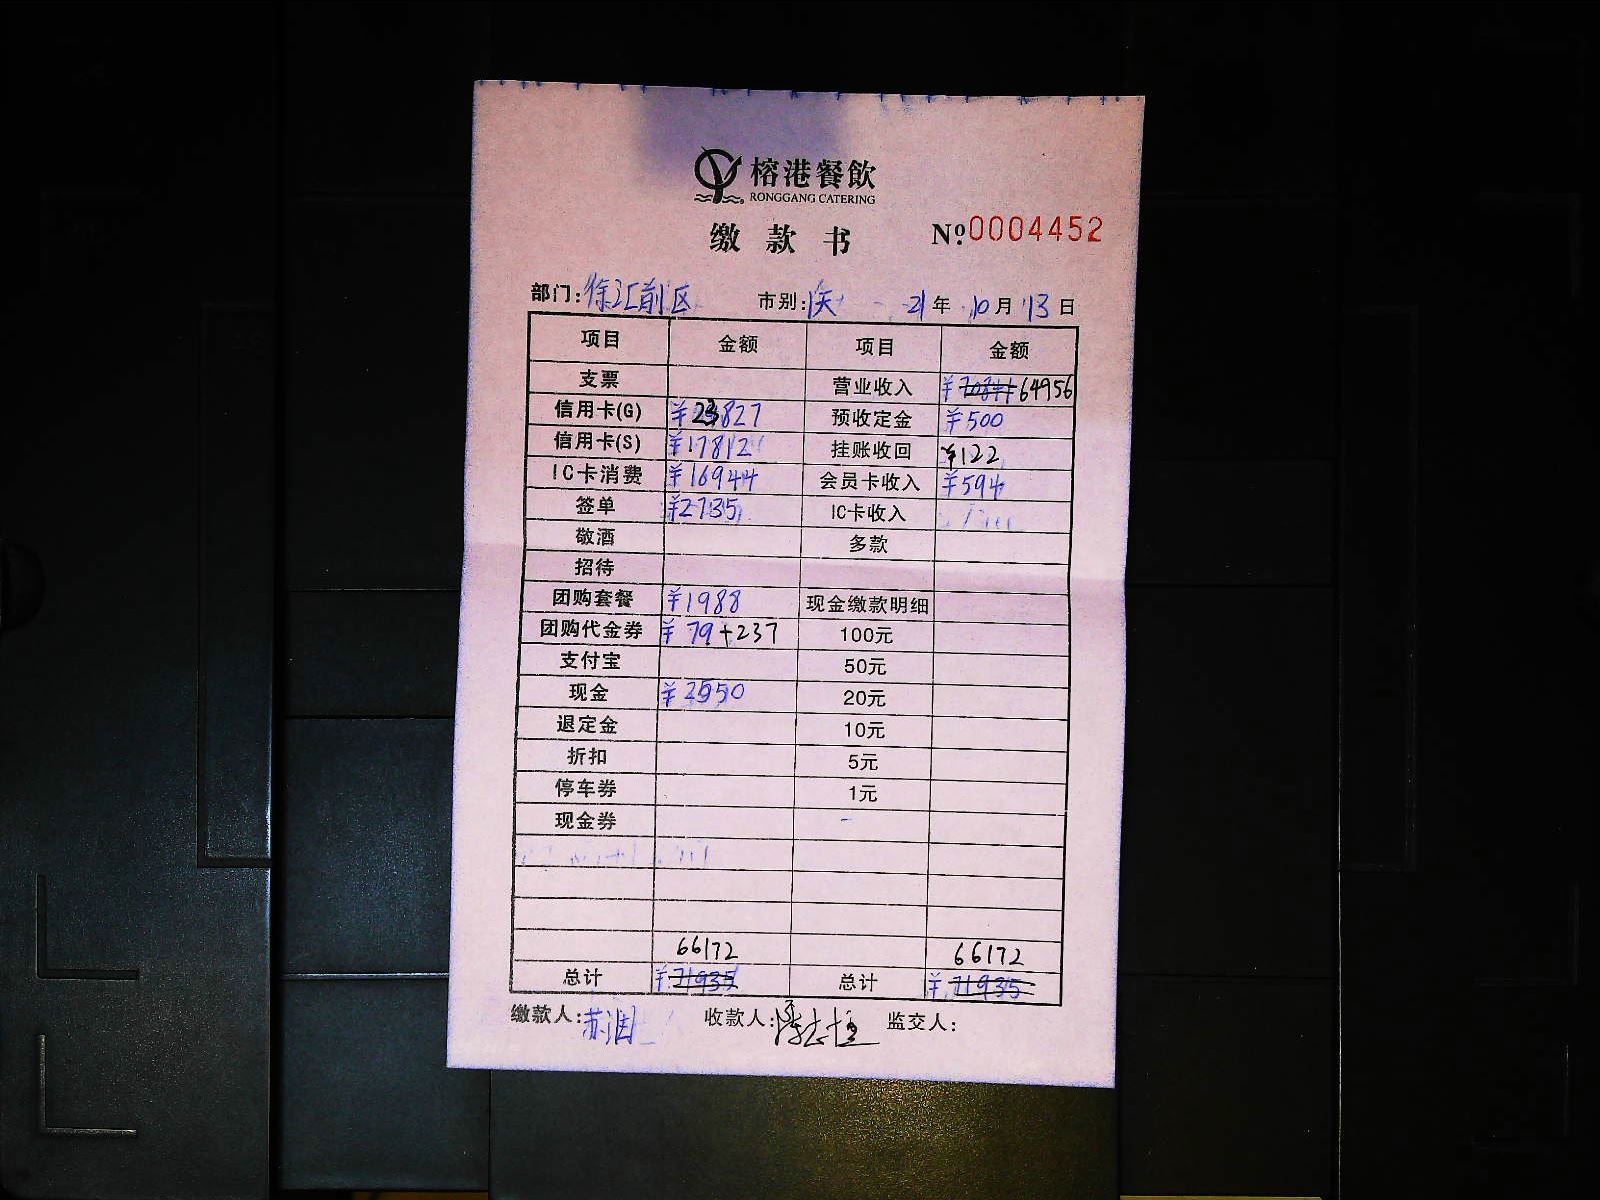 榕港餐飲
RONGGANG CATERING
缴款书 №0004452
部门:徐汇前区 市别: 21年10月13日
项目 金额 项目 金额
支票 营业收入 ¥ 64956
信用卡(G) ¥23827 预收定金 ¥500
信用卡(S) ¥17812 挂账收回 ¥122
IC卡消费 ¥16944 会员卡收入 ¥594
签单 ¥2735 IC卡收入
敬酒 多款
招待
团购套餐 ¥1988 现金缴款明细
团购代金券 ¥79+237 100元
支付宝 50元
现金 ¥2550 20元
退定金 10元
折扣 5元
停车券 1元
现金券
66172 66172
总计 ¥71935 总计 ¥71935
缴款人: 收款人: 监交人: